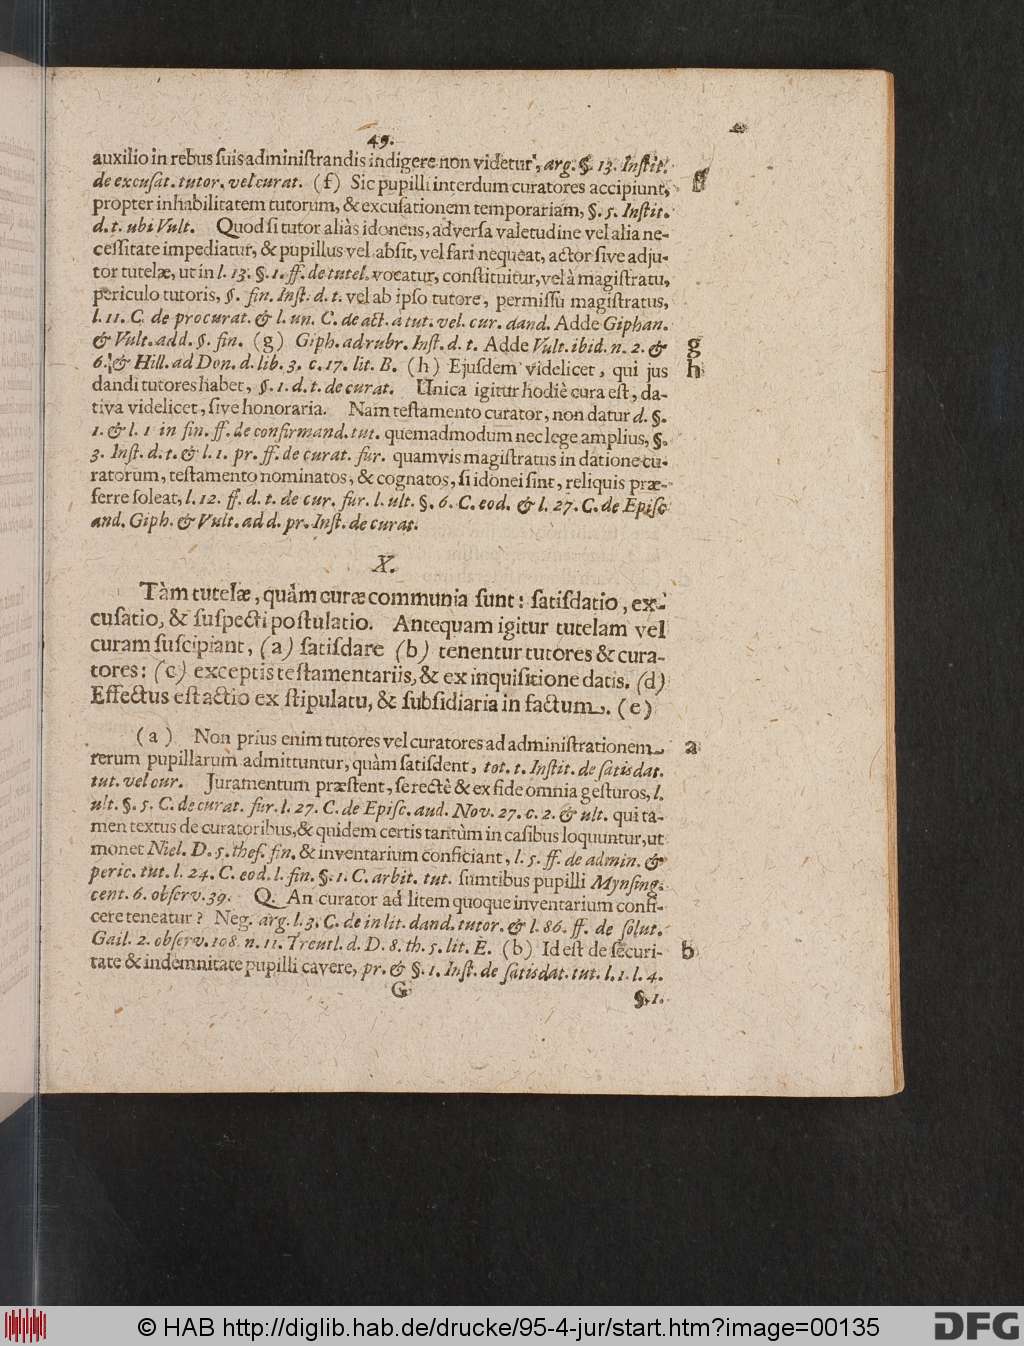 49.
auxilio in rebus ſuis adminiſtrandis indigere non videtur, arg. §. 13. Inſtit.
de excuſat. tutor. vel curat. (f) Sic pupilli interdum curatores accipiunt, f
propter inhabilitatem tutorum, & excuſationem temporariam, §. 5. Inſtit.
d. t. ubi Vult. Quod ſi tutor aliàs idoneus, adverſa valetudine vel alia ne-
ceſſitate impediatur, & pupillus vel abſit, vel fari nequeat, actor ſive adju-
tor tutelæ, ut in l. 13. §. 1. ff. de tutel. vocatur, conſtituitur, vel à magiſtratu,
periculo tutoris, §. fin. Inſt. d. t. vel ab ipſo tutore, permiſſu magiſtratus,
l. 11. C. de procurat. & l. un. C. de act. a tut. vel. cur. dand. Adde Giphan.
& Vult. add. §. fin. (g) Giph. ad rubr. Inſt. d. t. Adde Vult. ibid. n. 2. & g
6. & Hill. ad Don. d. lib. 3. c. 17. lit. B. (h) Ejuſdem videlicet, qui jus h
dandi tutores habet, §. 1. d. t. de curat. Unica igitur hodiè cura eſt, da-
tiva videlicet, ſive honoraria. Nam teſtamento curator, non datur d. §.
1. & l. 1 in fin. ff. de confirmand. tut. quemadmodum nec lege amplius, §.
3. Inſt. d. t. & l. 1. pr. ff. de curat. fur. quamvis magiſtratus in datione cu-
ratorum, teſtamento nominatos, & cognatos, ſi idonei ſint, reliquis præ-
ferre ſoleat, l. 12. ff. d. t. de cur. fur. l. ult. §. 6. C. eod. & l. 27. C. de Epiſc
aud. Giph. & Vult. ad d. pr. Inſt. de curat.
X.
Tàm tutelæ, quàm curæ communia ſunt: ſatiſdatio, ex-
cuſatio, & ſuſpecti poſtulatio. Antequam igitur tutelam vel
curam ſuſcipiant, (a) ſatiſdare (b) tenentur tutores & cura-
tores: (c) exceptis teſtamentariis, & ex inquiſitione datis. (d)
Effectus eſt actio ex ſtipulatu, & ſubſidiaria in factum. (e)
(a) Non prius enim tutores vel curatores ad adminiſtrationem a
rerum pupillarum admittuntur, quàm ſatiſdent, tot. t. Inſtit. de ſatisdat.
tut. vel cur. Juramentum præſtent, ſe rectè & ex fide omnia geſturos, l.
ult. §. 5. C. de curat. fur. l. 27. C. de Epiſc. aud. Nov. 27. c. 2. & ult. qui ta-
men textus de curatoribus, & quidem certis tantùm in caſibus loquuntur, ut
monet Niel. D. 5. theſ. fin. & inventarium conficiant, l. 5. ff. de admin. &
peric. tut. l. 24. C. eod. l. fin. §. 1. C. arbit. tut. ſumtibus pupilli Mynſing.
cent. 6. obſerv. 39. Q. An curator ad litem quoque inventarium confi-
cere teneatur? Neg. arg. l. 3. C. de in lit. dand. tutor. & l. 86. ff. de ſolut.
Gail. 2. obſerv. 108. n. 11. Treutl. d. D. 8. th. 5. lit. E. (b) Id eſt de ſecuri- b
tate & indemnitate pupilli cavere, pr. & §. 1. Inſt. de ſatisdat. tut. l. 1. l. 4.
G §. 1.
© HAB http://diglib.hab.de/drucke/95-4-jur/start.htm?image=00135 DFG